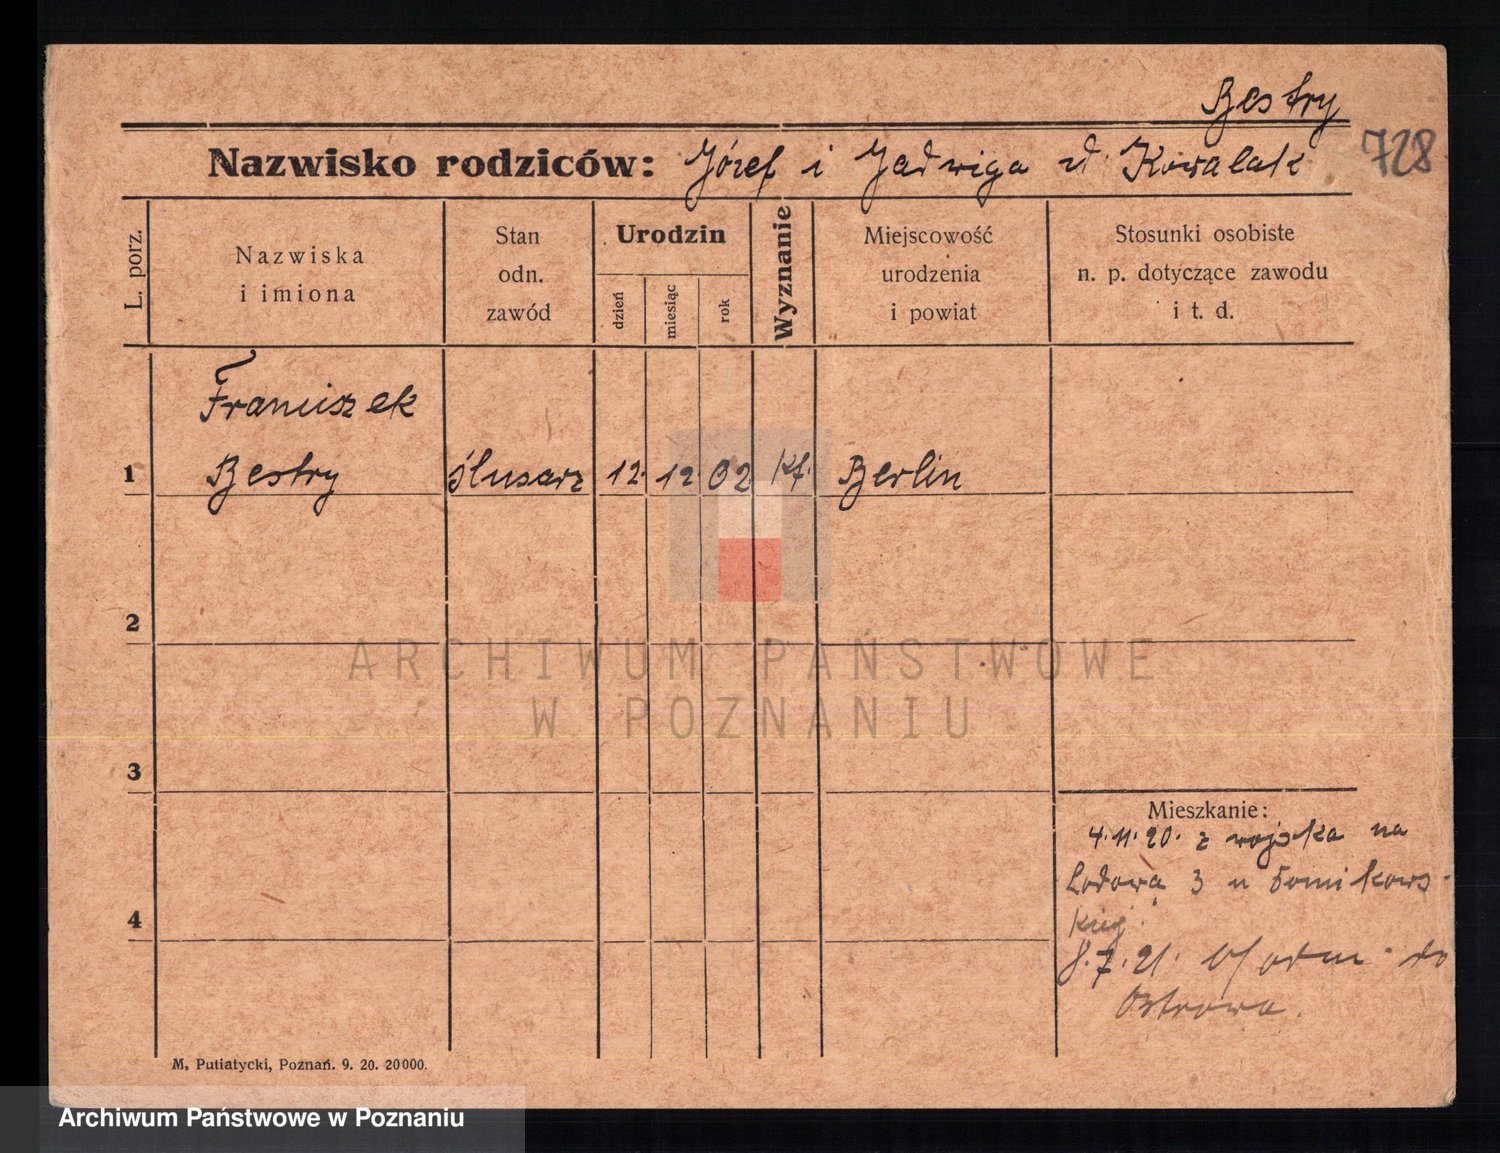 Bestry
Nazwisko rodziców: Józef i Jadwiga d Kowalak 728
L. porz.
Nazwiska
i imiona
Stan
odn.
zawód
Urodzin
dzień
miesiąc
rok
Wyznanie
Miejscowość
urodzenia
i powiat
Stosunki osobiste
n. p. dotyczące zawodu
i t. d.
Franciszek
1 Bestry ślusarz 12. 12 02 Kt. Berlin
2
3
4
Mieszkanie:
4.11.20. z wojska na
Lodowa 3 u Tomikows-
kiej.
8.7.21. do
Ostrowa.
M. Putiatycki, Poznań. 9. 20. 20000.
ARCHIWUM PAŃSTWOWE
W POZNANIU
Archiwum Państwowe w Poznaniu